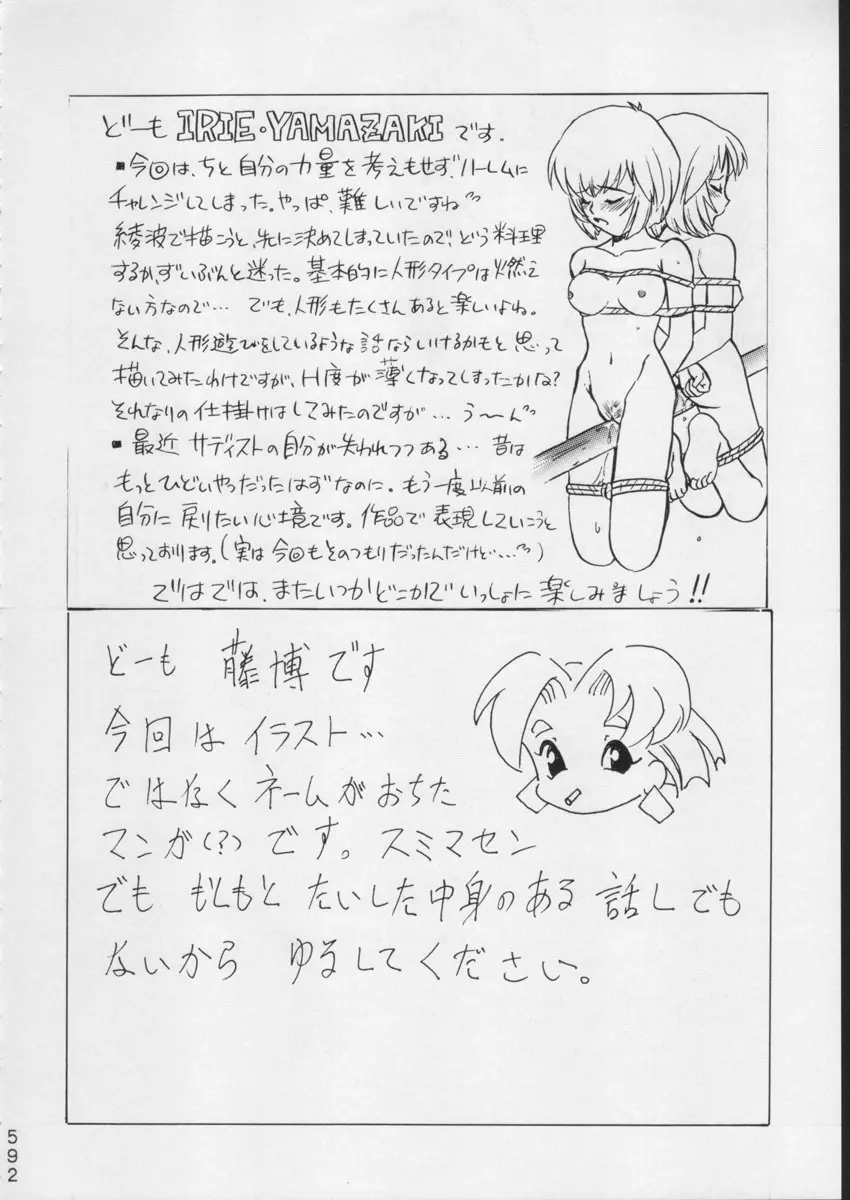 どーも IRIE・YAMAZAKI です.
▪今回は、ちと自分の力量を考えもせず、ハーレムに
チャレンジしてしまった。やっぱ、難しいですね
綾波で描こうと、先に決めてしまっていたので、どう料理
するか、ずいぶんと迷った。基本的に人形タイプは燃え
ない方なので… でも、人形もたくさんあると楽しいよね。
そんな、人形遊びをしているような話ならいけるかもと思って
描いてみたわけですが、H度が薄くなってしまったかな?
それなりの仕掛けはしてみたのですが… う〜ん
▪最近 サディストの自分が失われつつある… 昔は
もっとひどいやつだったはずなのに。もう一度以前の
自分に戻りたい心境です。作品で表現していこうと
思っております。(実は今回もそのつもりだったんだけど…)
ではでは、またいつかどこかでいっしょに楽しみましょう!!
どーも 藤博です
今回は イラスト…
ではなく ネームがおちた
マンガ(?)です。スミマセン
でも もともと たいした中身のある 話しでも
ないから ゆるしてください。
592